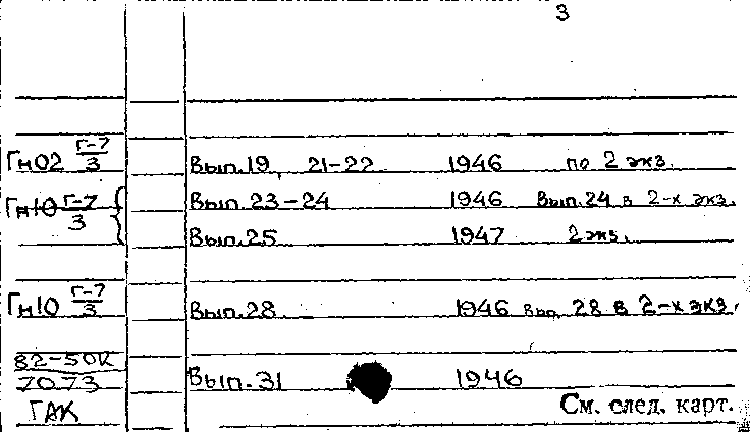 3
Гн02 Г-7/3 Вып.19, 21-22 1946 по 2 экз.
Гн10 Г-7/3 { Вып.23-24 1946 Вып.24 в 2-х экз.
Вып.25 1947 2 экз.
Гн10 Г-7/3 Вып.28 1946 Вып. 28 в 2-х экз.
82-50К
7073 Вып.31 1946
ГАК См. след. карт.